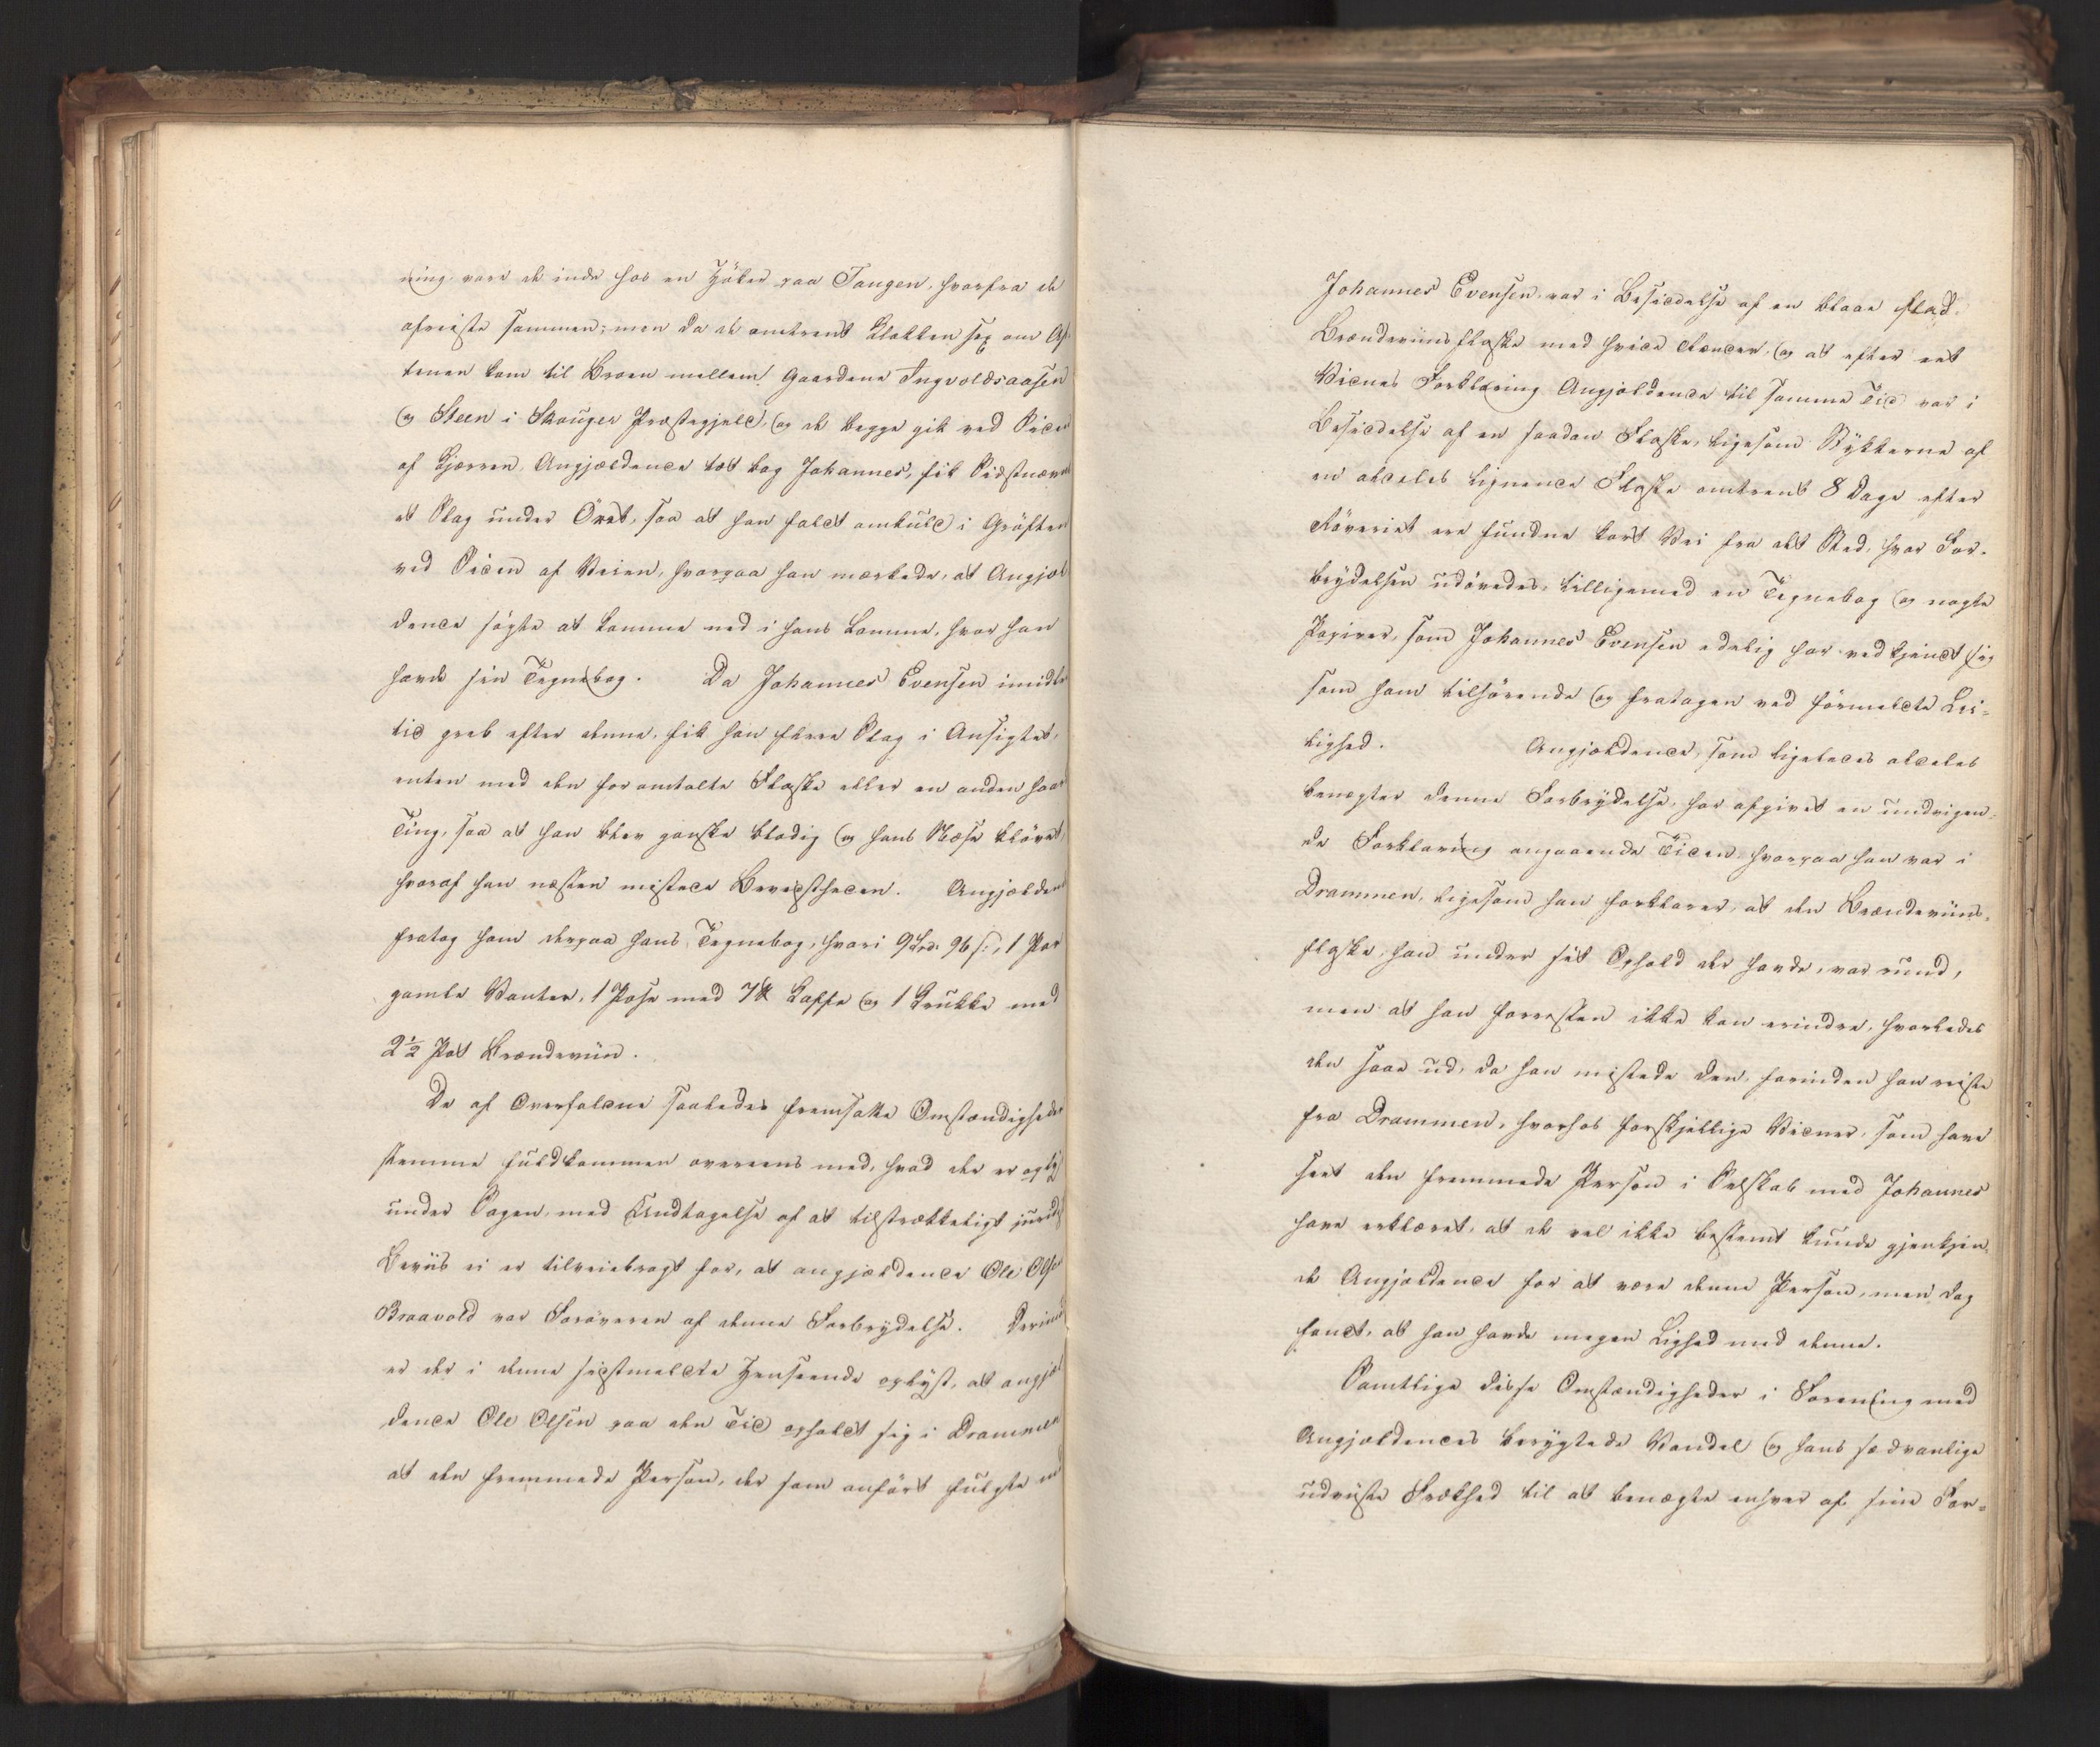 ning vare de inde hos en Höker paa Tangen, hvorfra de
afreiste sammen; men da de omtrent Klokken sex om Af-
tenen kom til Broen mellem Gaardene Ingvoldsaasen
og Steen i Skouger Præstegjeld, og de begge gik ved Siden
af Kjærren, Angjældende tæt bag Johannes, fik Sidstnævnte
et Slag under Öret, saa at han faldt omkuld i Gröften
ved Siden af Veien, hvorpaa han mærkede, at Angjæl
dende sögte at komme ned i hans Lomme, hvor han
havde sin Tegnebog. Da Johannes Evensen imidler
tid greb efter denne, fik han flere Slag i Ansigtet,
enten med den foromtalte Flaske eller en anden haard
Ting, saa at han blev ganske blodig og hans Næse klövet,
hvoraf han næsten mistede Bevidstheden. Angjældende
fratog ham derpaa hans Tegnebog, hvori 9 Spd. 96 s:, 1 Par
gamle Vanter, 1 Pose med 7 ℔ Kaffe og 1 Krukke med
2½ Pot Brændeviin.
De af Overfaldne saaledes fremsatte Omstændigheder
stemme fuldkommen overeens med, hvad der er oply
under Sagen, med Undtagelse af at tilstrækkeligt juridisk
Beviis ei er tilveiebragt for, at angjældende Ole Olsen
Braavold var Foröveren af denne Forbrydelse. Derimod
er der i denne sidstmeldte Henseende oplyst, at angjæl
dende Ole Olsen paa den Tid opholdt sig i Drammen
at den fremmede Person, der som anfört fulgte med
Johannes Evensen, var i Besiddelse af en blaae flad
Brændeviinsflaske med hvide Render, og at efter eet
Vidnes Forklaring Angjældende til samme Tid var i
Besiddelse af en saadan Flaske, ligesom Stykkerne af
en aldeles lignende Flaske omtrent 8 Dage efter
Röveriet ere fundne kort Vei fra det Sted, hvor For-
brydelsen udövedes, tilligemed en Tegnebog og nogle
Papirer, som Johannes Evensen edelig har vedkjendt sig
som ham tilhörende og fratagen ved förmeldte Lei-
lighed. Angjældende, som ligeledes aldeles
benægter denne Forbrydelse, har afgivet en undvigen-
de Forklaring angaaende Tiden, hvorpaa han var i
Drammen, ligesom han forklarer, at den Brændeviins-
flaske, han under sit Ophold der havde, var rund,
men at han forresten ikke kan erindre, hvorledes
den saae ud, da han mistede den, forinden han reiste
fra Drammen, hvorhos forskjellige Vidner, som have
seet den fremmede Person i Selskab med Johannes
have erklæret, at de vel ikke bestemt kunde gjenkjen-
de Angjældende for at være denne Person, men dog
fandt, at han havde megen Lighed med denne.
Samtlige disse Omstændigheder i Forening med
Angjældendes berygtede Vandel og hans sædvanlige
udviiste Frækhed til at benægte enhver af sine For-